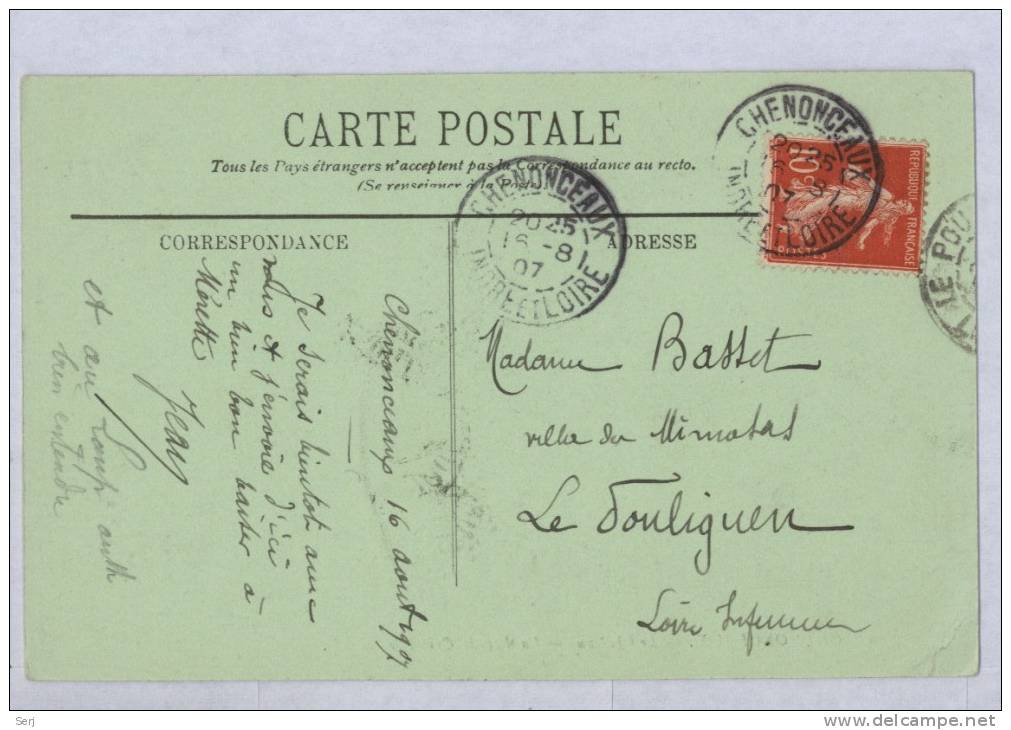 CARTE POSTALE
Tous les Pays étrangers n'acceptent pas la Correspondance au recto.
(Se renseigner à la Poste).
CORRESPONDANCE
ADRESSE
CHENONCEAUX
20 25
16 -8
07
INDRE ET LOIRE
CHENONCEAUX
20 25
16 -8
07
INDRE ET LOIRE
REPUBLIQUE FRANÇAISE
POSTES
10
LE POU
Chenonceaux 16 aout 1907
Je serais bientot avec
vous et j'envoie d'ici
un bien bon baiser à
Jean
et au
bien entendu
Madame Basset
villa du Mimosas
Le Pouliguen
Loire Inferieure
Serj
www.delcampe.net